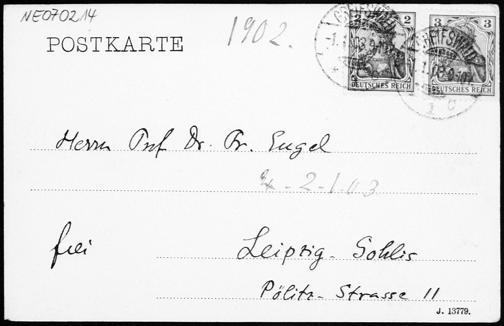 NE070214
POSTKARTE
1902.
2 2
3 3
DEUTSCHES REICH
DEUTSCHES REICH
GREIFSWALD
Herrn Prof. Dr. Fr. Engel
2-1.03
frei
Leipzig-Gohlis
Pölitz-Strasse 11
J. 13779.